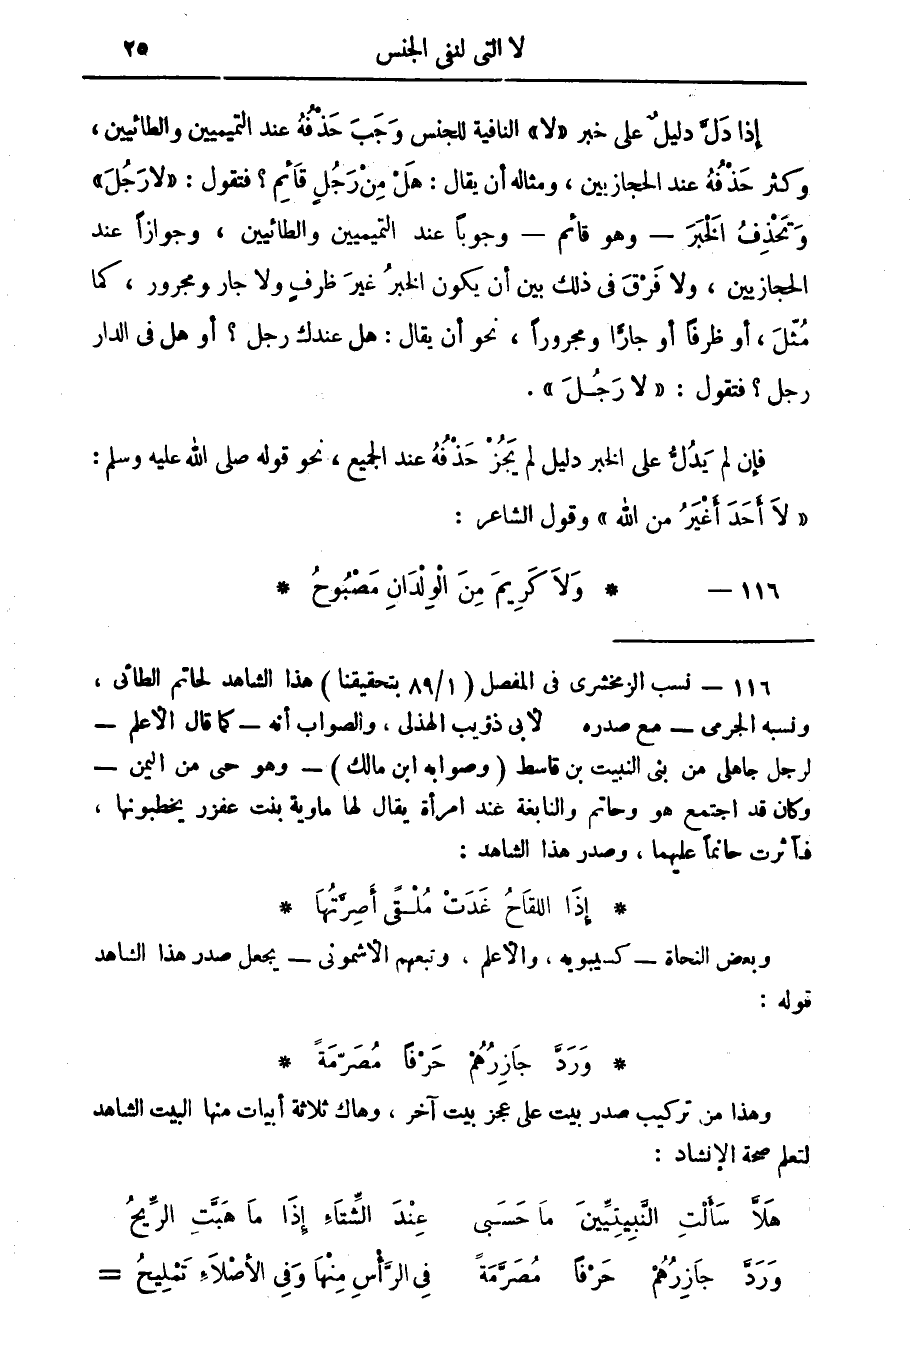 لا التى لنفى الجنس ٢٥
إذا دَلَّ دليلٌ على خبر «لا» النافية للجنس وَجَبَ حَذْفُهُ عند التميميين والطائيين ،
وكثر حَذْفُهُ عند الحجازيين ، ومثاله أن يقال : هَلْ مِنْ رَجُلٍ قَائِمٍ ؟ فتقول : «لا رَجُلَ»
وَتَحْذِفُ الْخَبَرَ — وهو قائم — وجوباً عند التميميين والطائيين ، وجوازاً عند
الحجازيين ، ولا فَرْقَ فى ذلك بين أن يكون الخبرُ غيرَ ظرفٍ ولا جار ومجرور ، كما
مُثِّلَ ، أو ظرفاً أو جارًّا ومجروراً ، نحو أن يقال : هل عندك رجل ؟ أو هل فى الدار
رجل ؟ فتقول : « لا رَجُـلَ » .
فإن لم يَدُلَّ على الخبر دليل لم يَجُزْ حَذْفُهُ عند الجميع ، نحو قوله صلى الله عليه وسلم :
« لاَ أَحَدَ أَغْيَرُ من الله » وقول الشاعر :
١١٦ — * وَلاَ كَرِيمَ مِنَ الْوِلْدَانِ مَصْبُوحُ *
١١٦ — نسب الزمخشرى فى المفصل ( ٨٩/١ بتحقيقنا ) هذا الشاهد لحاتم الطائى ،
ونسبه الجرمى — مع صدره لأبى ذؤيب الهذلى ، والصواب أنه — كما قال الأعلم —
لرجل جاهلى من بنى النبيت بن قاسط ( وصوابه ابن مالك ) — وهو حى من اليمن —
وكان قد اجتمع هو وحاتم والنابغة عند امرأة يقال لها ماوية بنت عفزر يخطبونها ،
فآثرت حاتماً عليهما ، وصدر هذا الشاهد :
* إِذَا اللقَاحُ غَدَتْ مُلْـقًى أَصِرَّتُهَا *
وبعض النحاة — كسيبويه ، والأعلم ، وتبعهم الأشمونى — يجعل صدر هذا الشاهد
قوله :
* وَرَدَّ جَازِرُهُمْ حَرْفًا مُصَرَّمَةً *
وهذا من تركيب صدر بيت على عجز بيت آخر ، وهاك ثلاثة أبيات منها البيت الشاهد
لتعلم صحة الإنشاد :
هَلاَّ سَأَلْتِ النَّبِيتِيِّينَ مَا حَسَبِى عِنْدَ الشِّتَاءِ إِذَا مَا هَبَّتِ الرِّيحُ
وَرَدَّ جَازِرُهُمْ حَرْفًا مُصَرَّمَةً فِى الرَّأْسِ مِنْهَا وَفِى الأَصْلاَءِ تَمْلِيحُ =